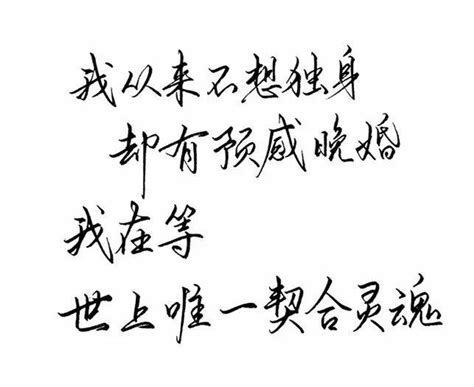 我从来不想独身
却有预感晚婚
我在等
世上唯一契合灵魂